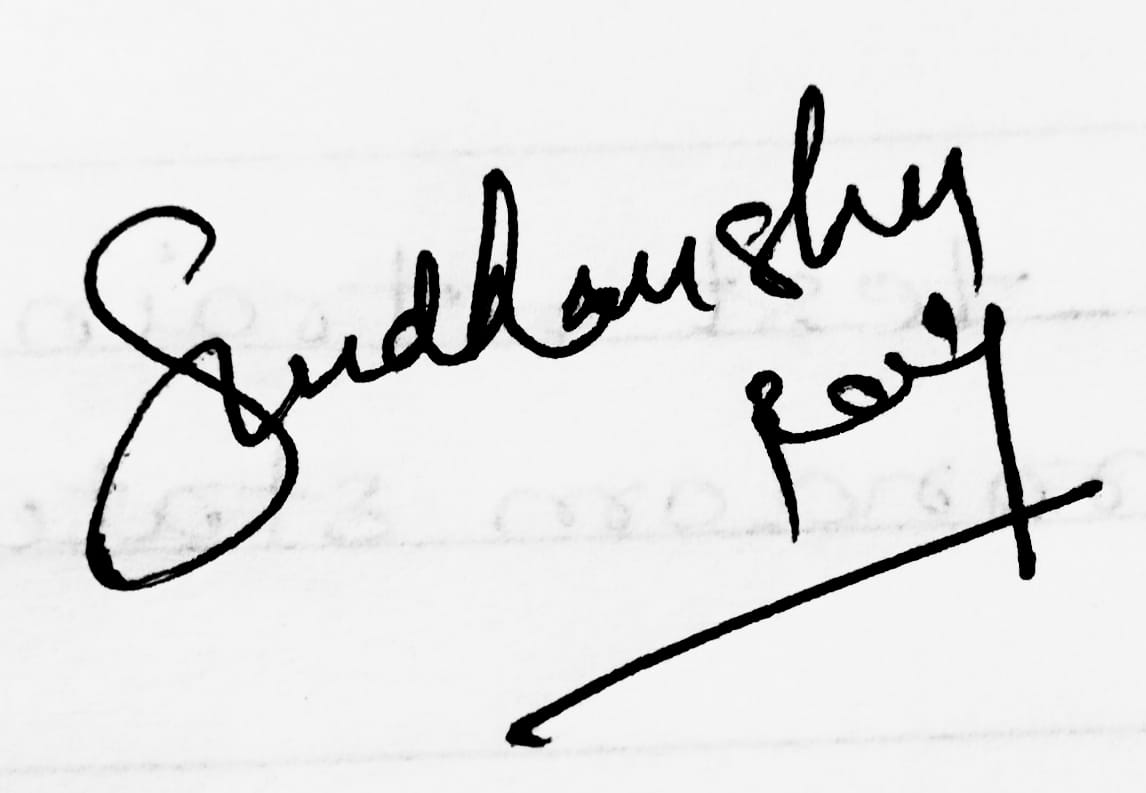 Sudhanshu
Roy